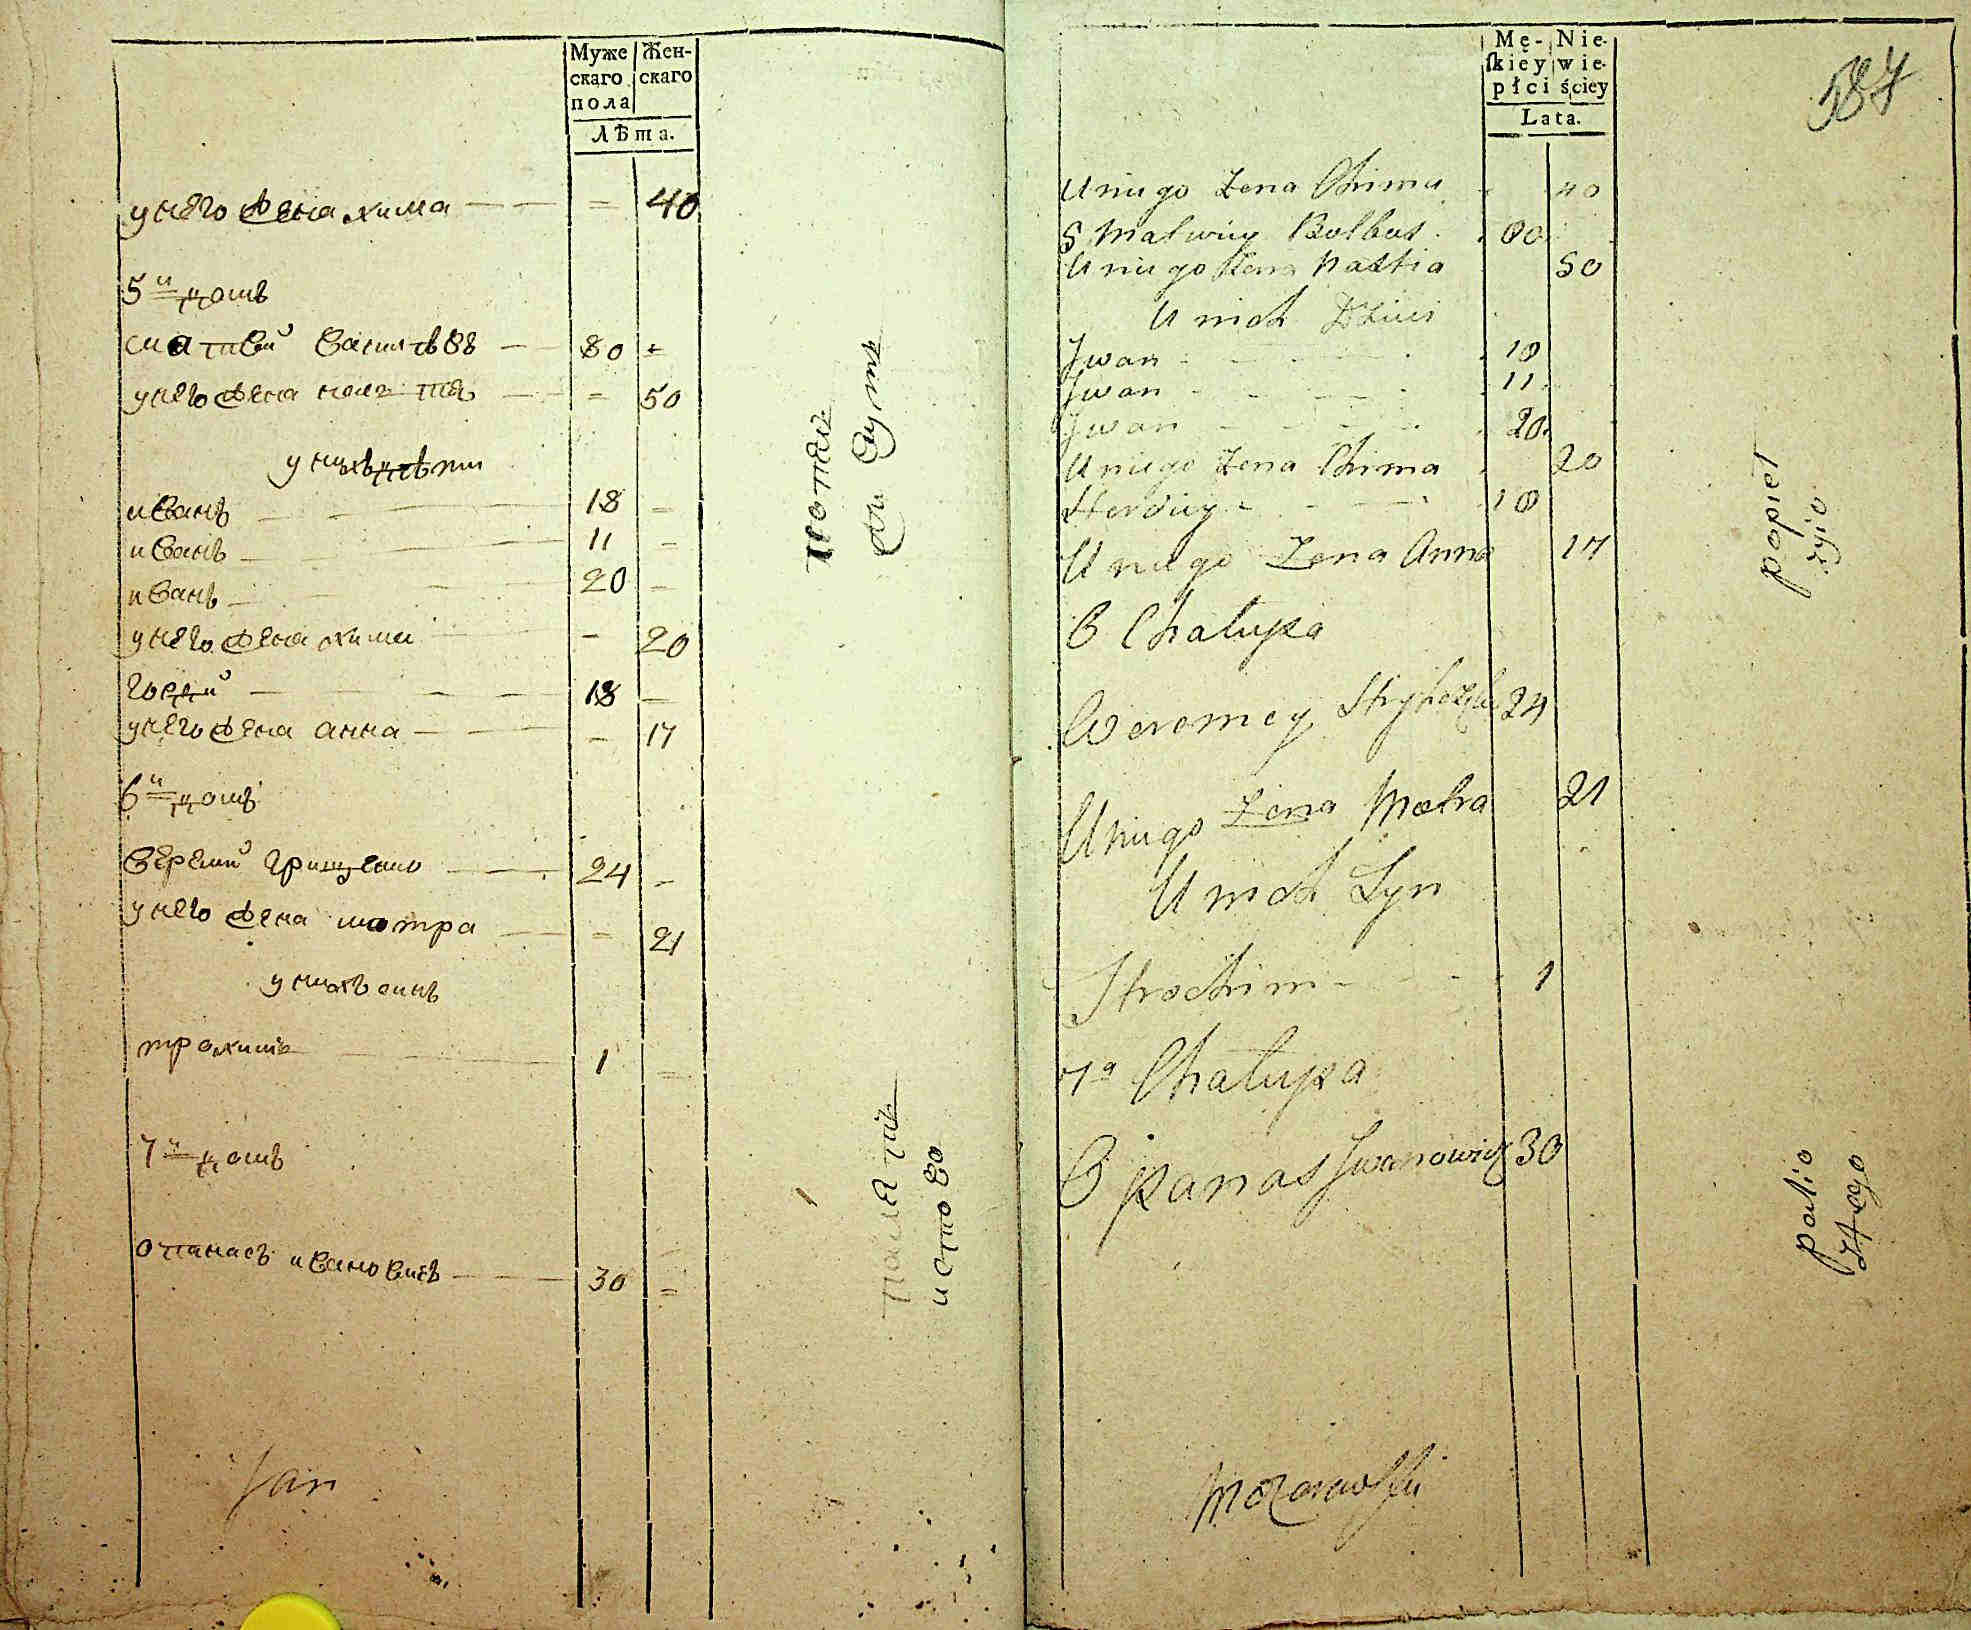 Муже
скаго
пола
Жен-
скаго
Лѣта.
у него жена хима — — = 40
5й домъ
Матвѣй — 80 =
у него жена — — = 50
у нихъ дѣти
иванъ — 18 —
иванъ — 11 —
иванъ — 20 —
у него жена хима — 20
гордѣй — 18 —
у него жена анна — — 17
6й домъ
Веремѣй грищенко — 24 —
у него жена мотра — = 21
у нихъ синъ
трохимъ — 1 =
7й домъ
опанасъ ивановичъ — 30 =
Jan
Mę-
skiey
płci
Nie-
wie-
ściey
Lata.
587
U niego Zena Chima 40
5 Matwiey 80
U niego Zena Nastia 50
U nich Dzieci
Jwan 18
Jwan 11
Jwan 20
U niego Zena Chima 20
Herdiey 18
U niego Zena Anna 17
6 Chałupa
Weremey 24
U niego Zena Motra 21
U nich Syn
Trochim 1
7a Chałupa
Opanas Jwanowicz 30